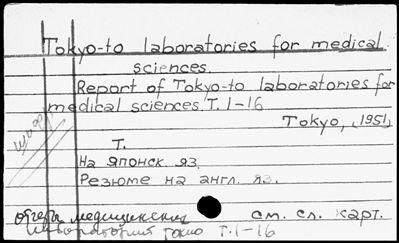 Tokyo-to laboratories for medical
sciences.
Report of Tokyo-to laboratories for
medical sciences. T. 1-16
Tokyo, (1951)
T.
На японск. яз.
Резюме на англ. яз.
см. сл. карт.
Токио Т. 1-16